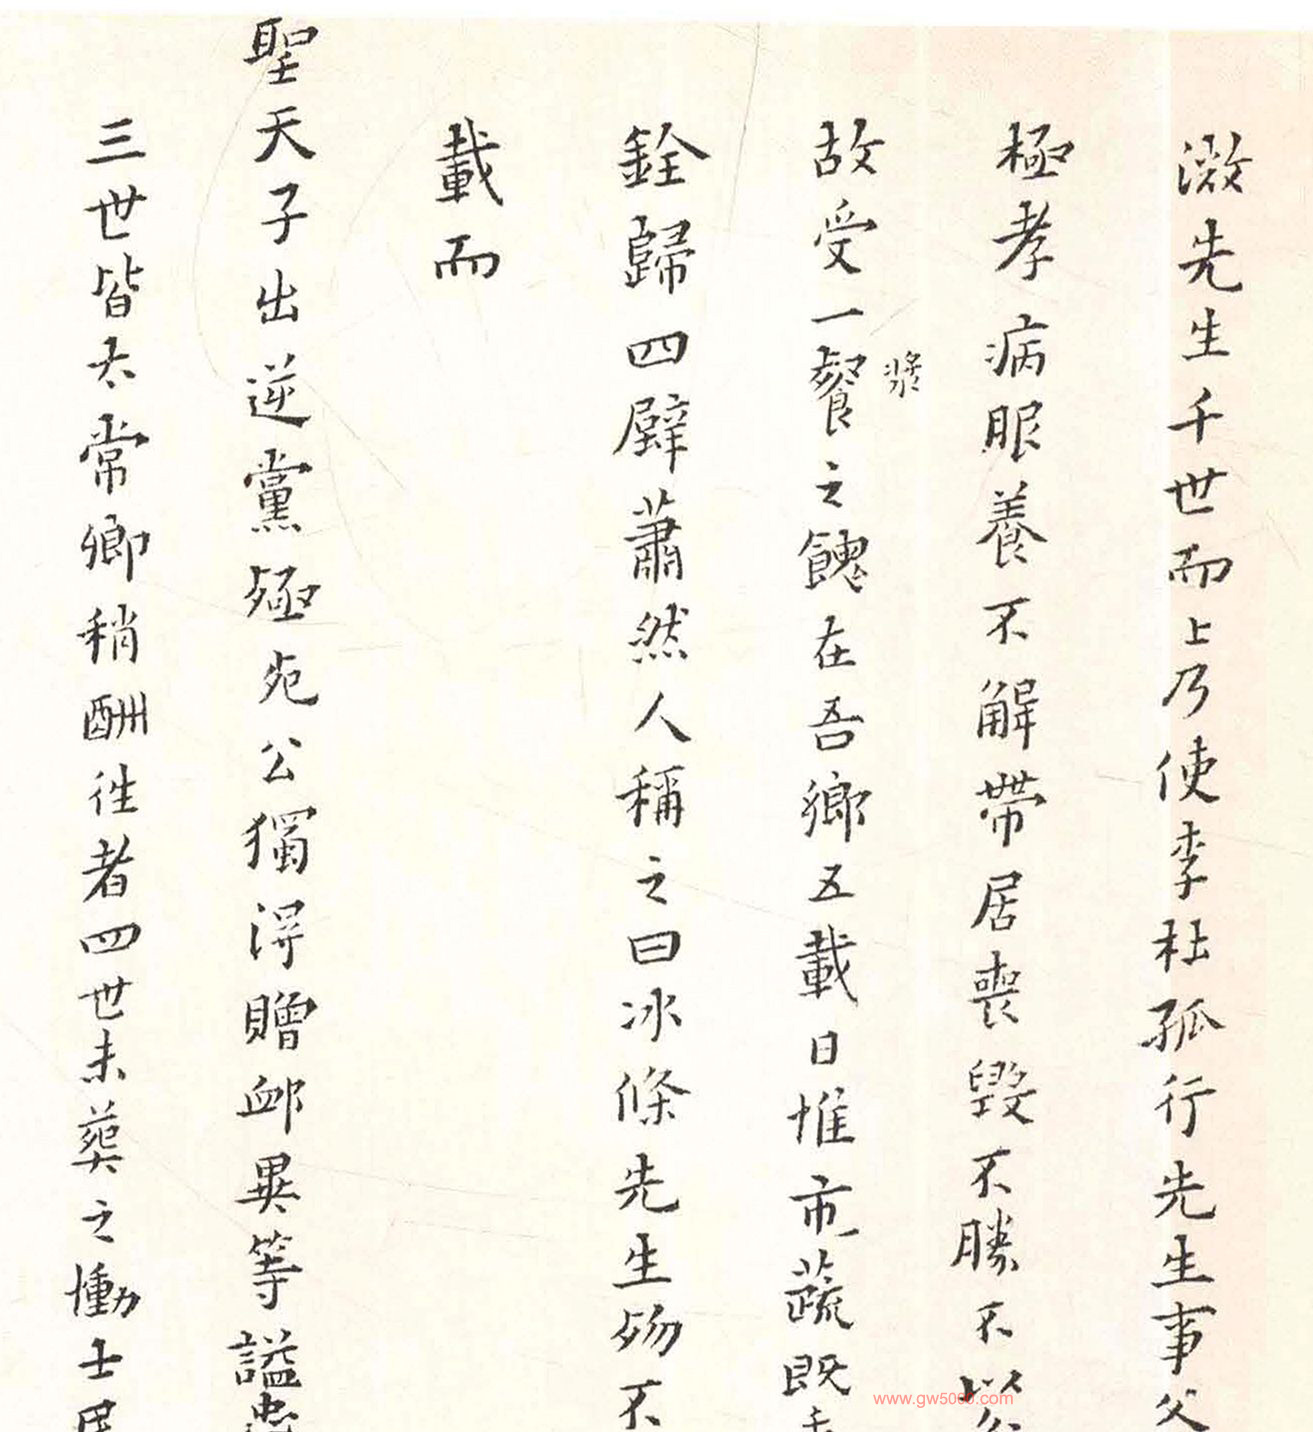 激先生千世而上乃使李杜孤行先生事父
極孝病眼養不解帶居喪毀不勝不
故受一餐之餽在吾鄉五載日惟市蔬既
漿
銓歸四壁蕭然人稱之曰冰條先生歿不
載而
聖天子出逆黨殛死公獨得贈卹異等謚忠
三世皆太常卿稍酬往者四世未葬之慟士
www.gw5000.com